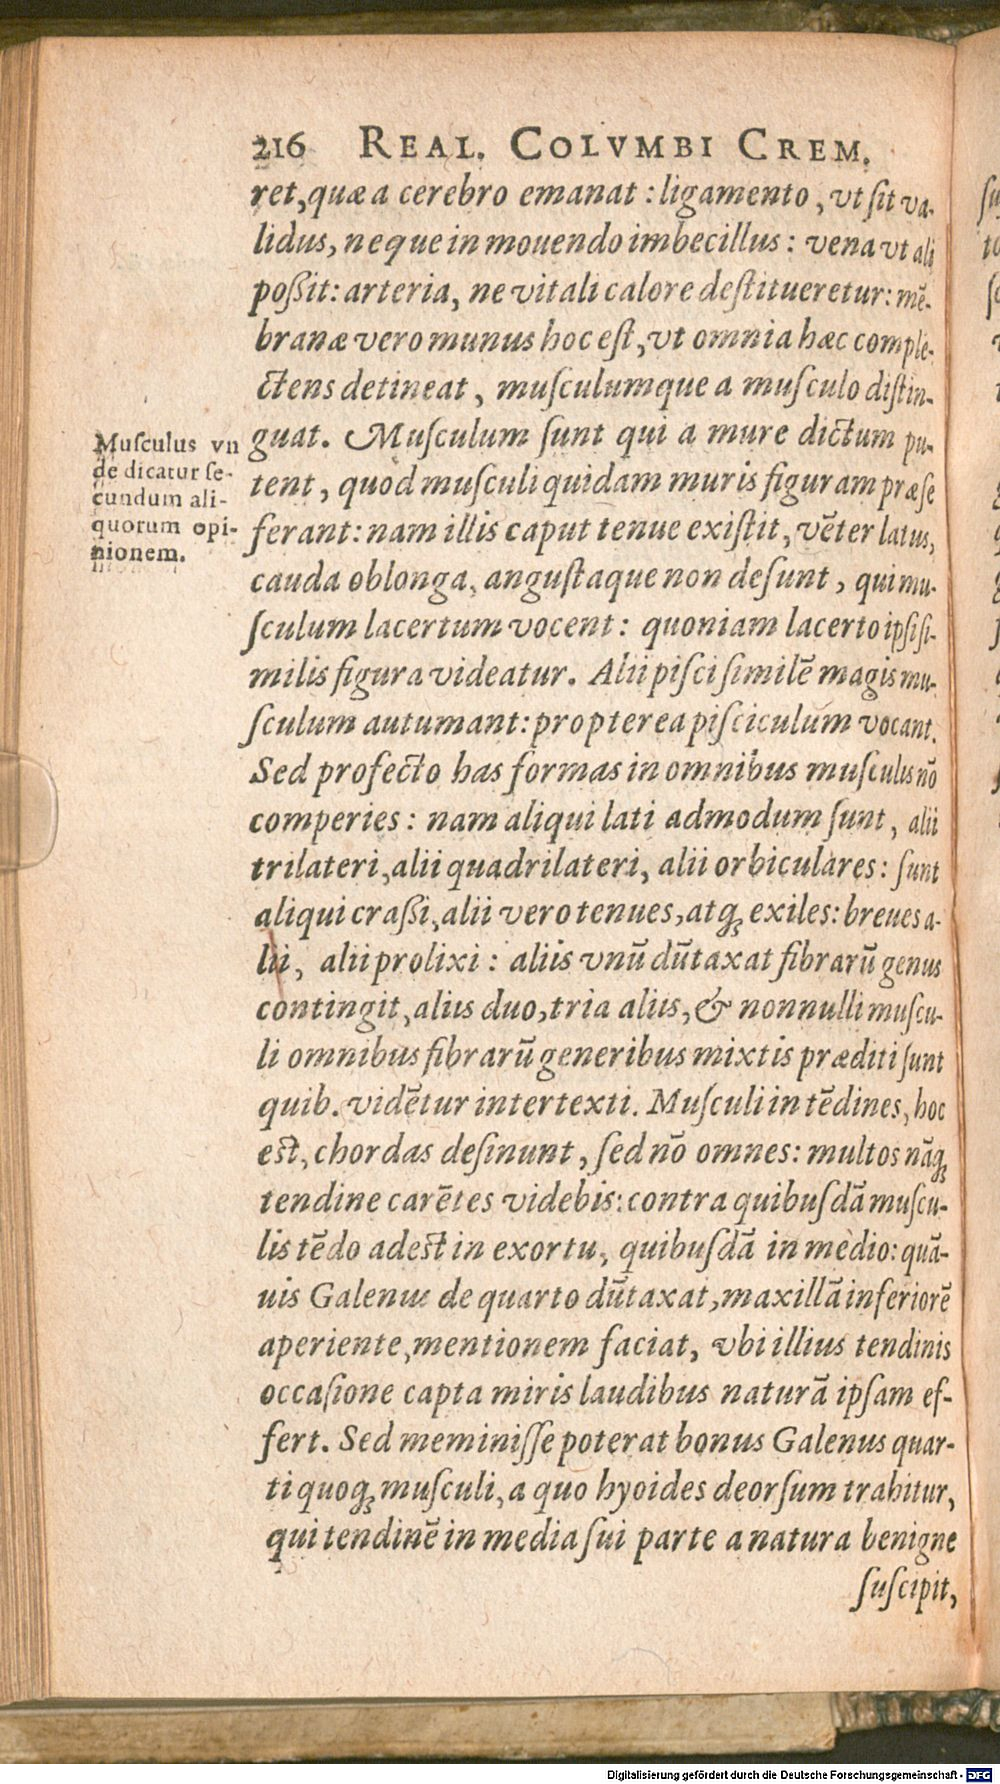 216 REAL. COLVMBI CREM.
ret, quæ a cerebro emanat: ligamento, vt ſit va-
lidus, neque in mouendo imbecillus: vena vt ali
poßit: arteria, ne vitali calore deſtitueretur: mē-
branæ vero munus hoc eſt, vt omnia hæc comple-
ctens detineat, muſculumque a muſculo diſtin-
guat. Muſculum ſunt qui a mure dictum pu-
tent, quod muſculi quidam muris figuram præſe
ferant: nam illis caput tenue exiſtit, vēter latus,
cauda oblonga, anguſtaque non deſunt, qui mu-
ſculum lacertum vocent: quoniam lacerto ipſiſi-
milis figura videatur. Alii piſci ſimilē magis mu-
ſculum autumant: propterea piſciculum vocant.
Sed profecto has formas in omnibus muſculis nō
comperies: nam aliqui lati admodum ſunt, alii
trilateri, alii quadrilateri, alii orbiculares: ſunt
aliqui craßi, alii vero tenues, atq; exiles: breues a-
lii, alii prolixi: aliis vnū dūtaxat fibrarū genus
contingit, aliis duo, tria aliis, & nonnulli muſcu-
li omnibus fibrarū generibus mixtis præditi ſunt
quib. vidētur intertexti. Muſculi in tēdines, hoc
eſt, chordas deſinunt, ſed nō omnes: multos nāq;
tendine carētes videbis: contra quibuſdā muſcu-
lis tēdo adeſt in exortu, quibuſdā in medio: quā-
uis Galenus de quarto dūtaxat, maxillā inferiorē
aperiente, mentionem faciat, vbi illius tendinis
occaſione capta miris laudibus naturā ipſam ef-
fert. Sed meminiſſe poterat bonus Galenus quar-
ti quoq; muſculi, a quo hyoides deorſum trahitur,
qui tendinē in media ſui parte a natura benigne
ſuſcipit,
Muſculus vn
de dicatur ſe-
cundum ali-
quorum opi-
nionem.
Digitalisierung gefördert durch die Deutsche Forschungsgemeinschaft - DFG